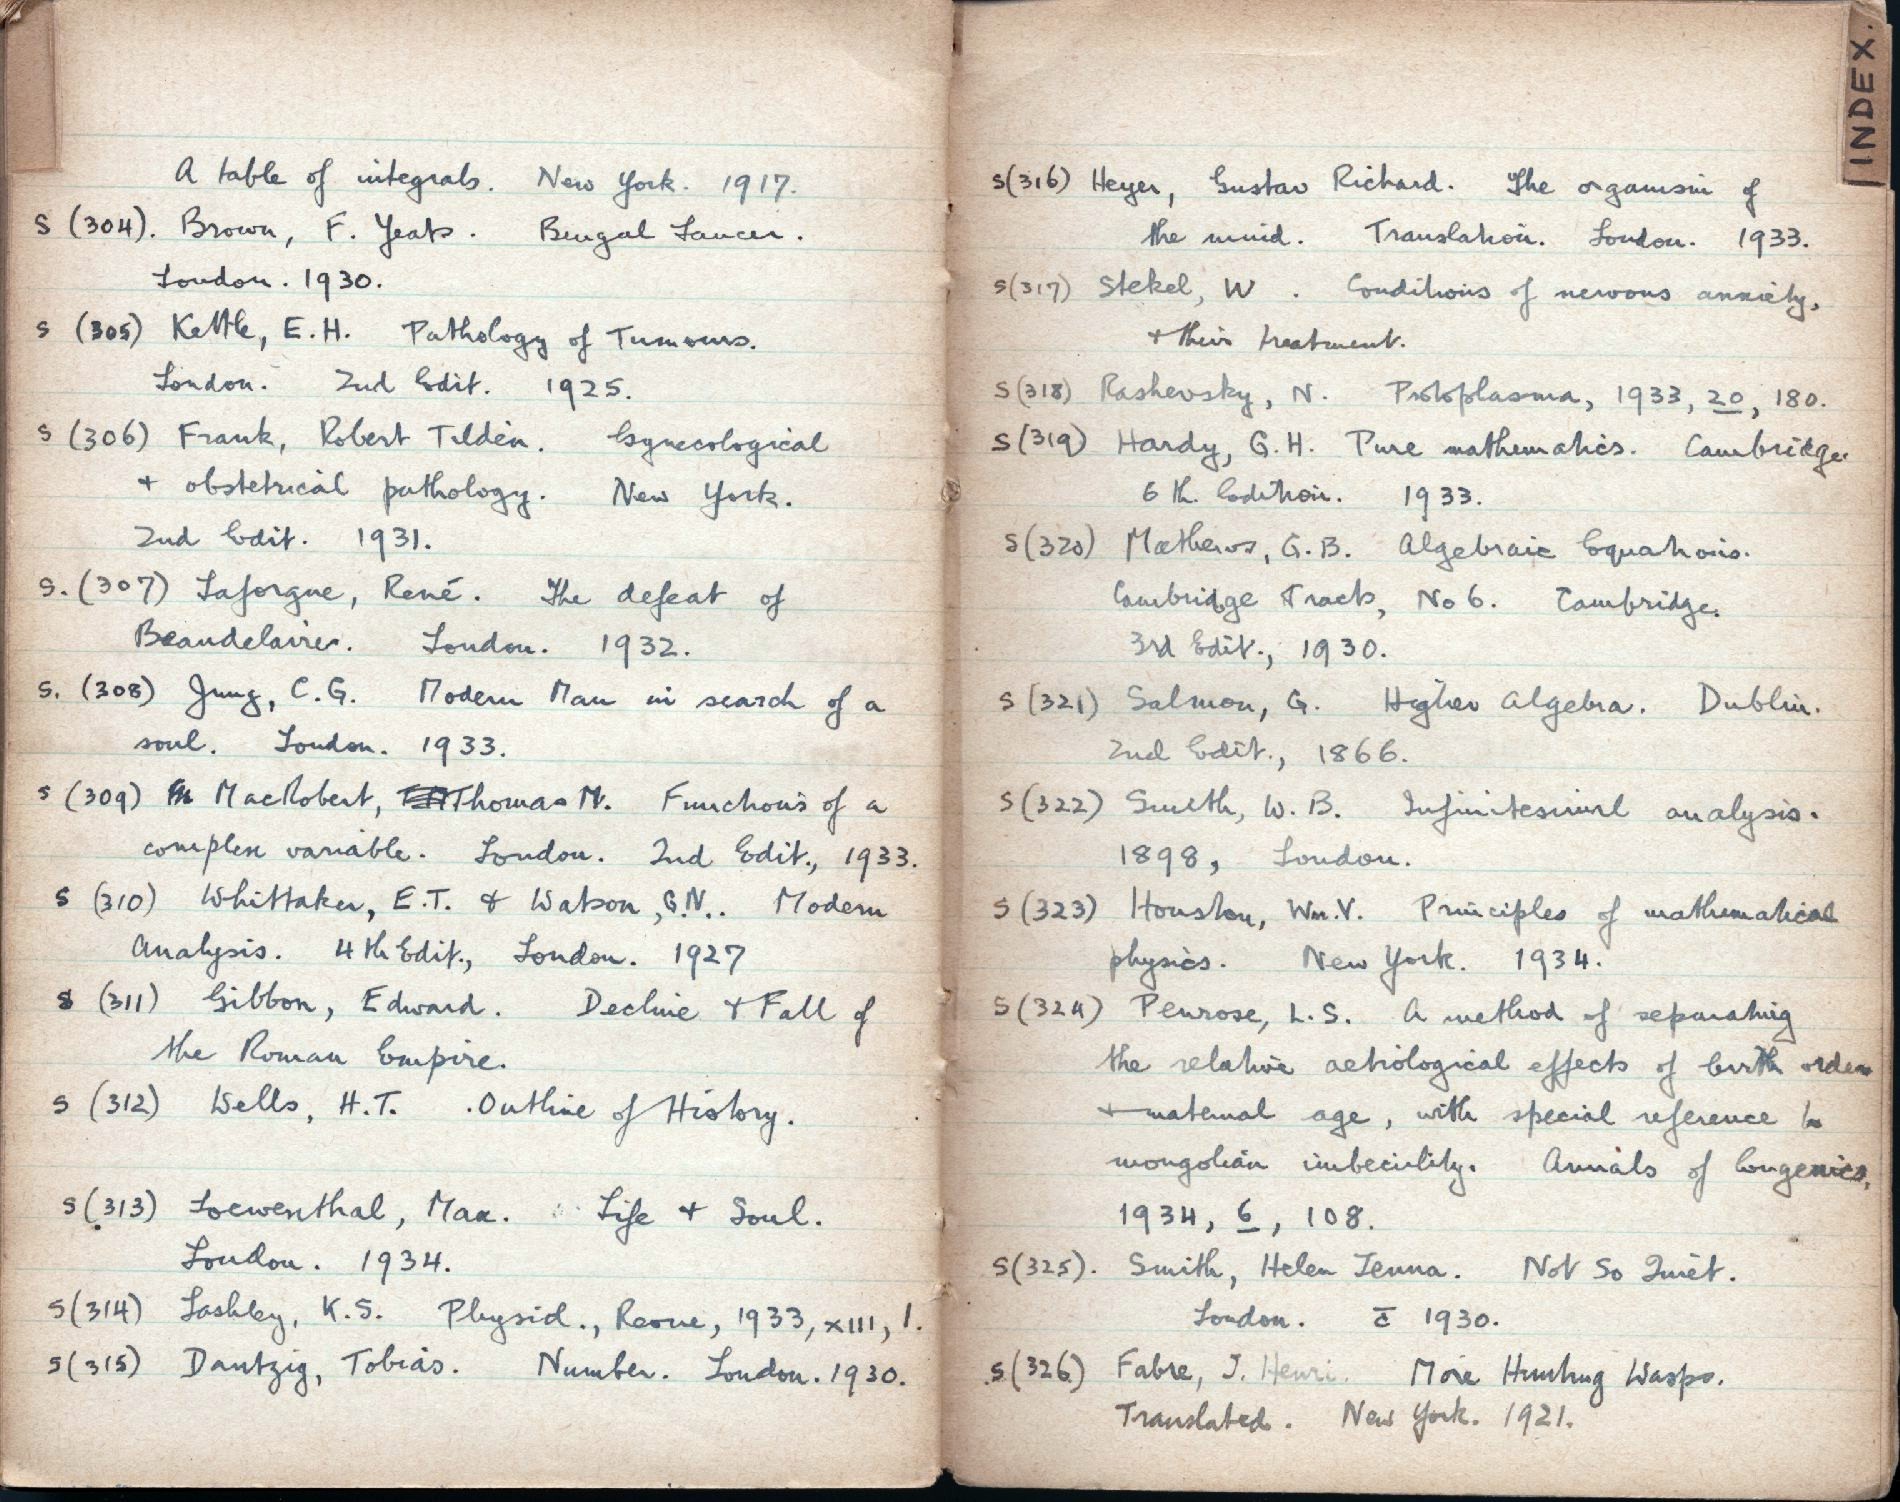 A table of integrals. New York. 1917.
S (304). Brown, F. Yeats. Bengal Lancer.
London. 1930.
S (305) Kettle, E.H. Pathology of Tumours.
London. 2nd Edit. 1925.
S (306) Frank, Robert Tilden. Gynecological
+ obstetrical pathology. New York.
2nd Edit. 1931.
S. (307) Laforgue, René. The defeat of
Beaudelaire. London. 1932.
S. (308) Jung, C.G. Modern Man in search of a
soul. London. 1933.
S (309) MacRobert, Thomas M. Functions of a
complex variable. London. 2nd Edit., 1933.
S (310) Whittaker, E.T. & Watson, G.N.. Modern
Analysis. 4th Edit., London. 1927
S (311) Gibbon, Edward. Decline + Fall of
the Roman Empire.
S (312) Wells, H.T. Outline of History.
S (313) Loewenthal, Max. Life + Soul.
London. 1934.
S (314) Lashley, K.S. Physiol., Revue, 1933, XIII, 1.
S (315) Dantzig, Tobias. Number. London. 1930.
INDEX.
S (316) Heyer, Gustav Richard. The organism of
the mind. Translation. London. 1933.
S (317) Stekel, W. Conditions of nervous anxiety,
+ their treatment.
S (318) Rashevsky, N. Protoplasma, 1933, 20, 180.
S (319) Hardy, G.H. Pure mathematics. Cambridge.
6th. Edition. 1933.
S (320) Mathews, G.B. Algebraic Equations.
Cambridge Tracts, No 6. Cambridge.
3rd Edit., 1930.
S (321) Salmon, G. Higher Algebra. Dublin.
2nd Edit., 1866.
S (322) Smith, W.B. Infinitesimal analysis.
1898, London.
S (323) Houston, Wm.V. Principles of mathematical
physics. New York. 1934.
S (324) Penrose, L.S. A method of separating
the relative aetiological effects of birth order
+ maternal age, with special reference to
mongolian imbecility. Annals of Eugenics,
1934, 6, 108.
S (325). Smith, Helen Zenna. Not So Quiet.
London. c̄ 1930.
S (326) Fabre, J. Henri. More Hunting Wasps.
Translated. New York. 1921.